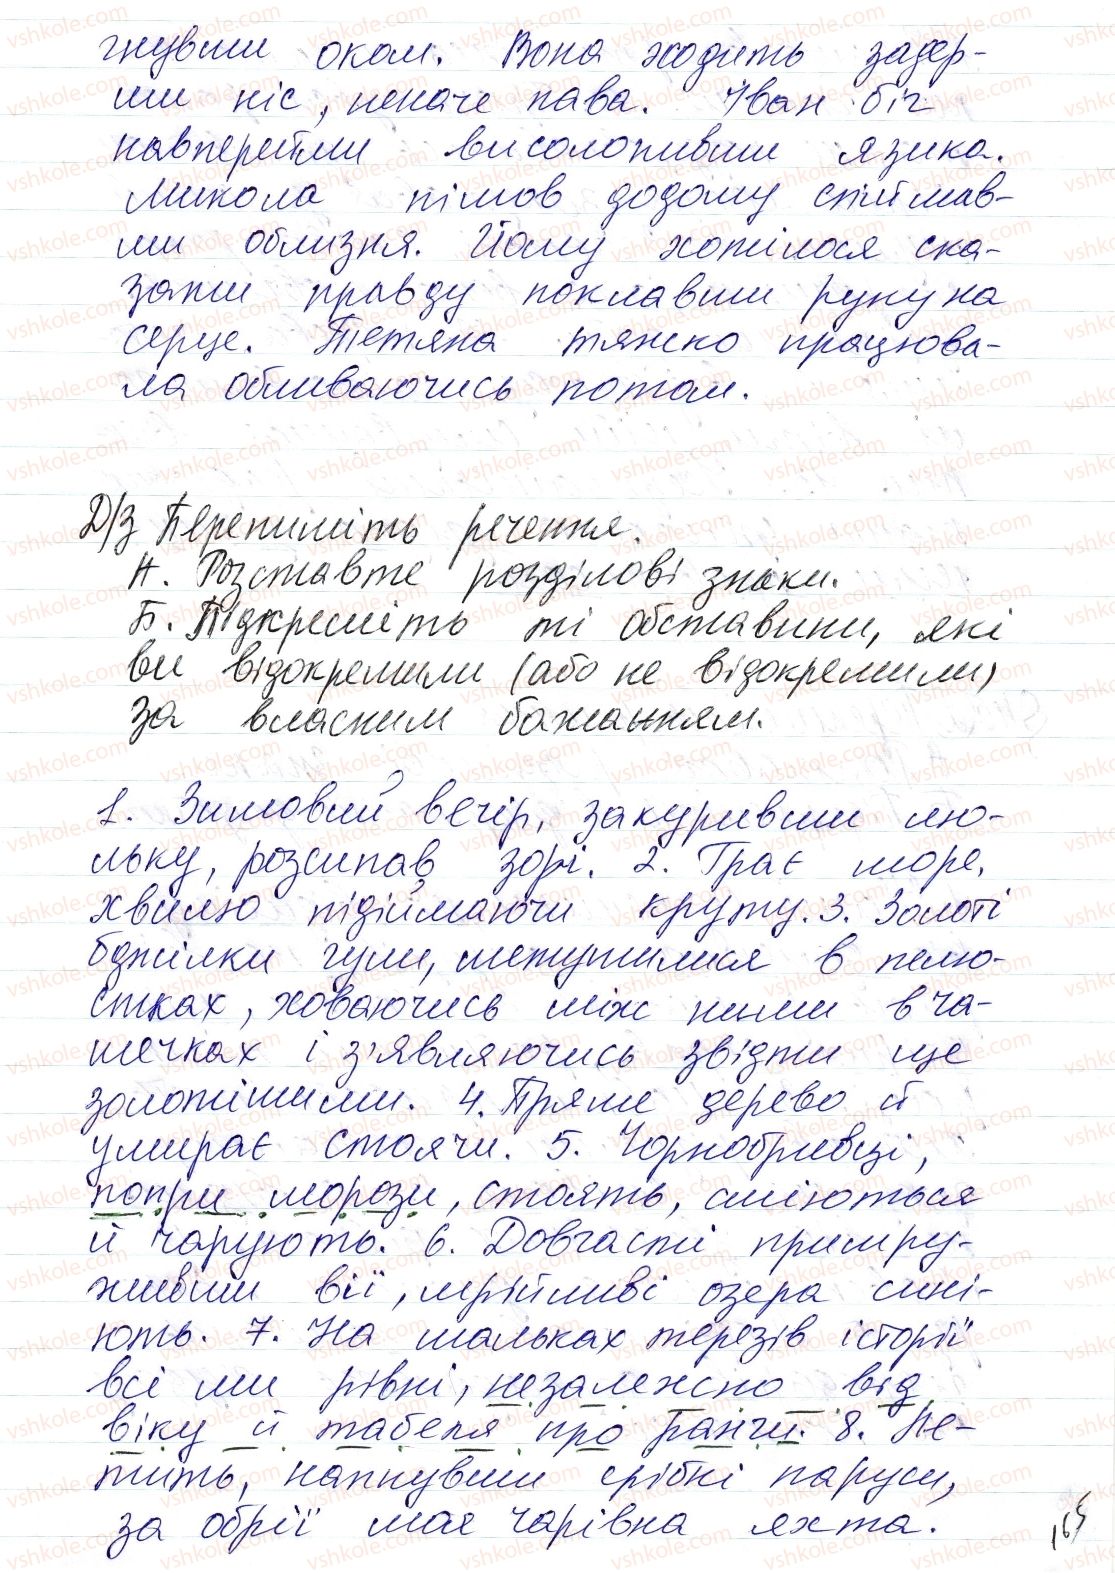 гнувши оком. Вона ходить задер-
ши ніс, неначе пава. Іван біг
навперейми висолопивши язика.
Микола пішов додому спіймав-
ши облизня. Йому хотілося ска-
зати правду поклавши руку на
серце. Тетяна тяжко працюва-
ла обливаючись потом.
Д/з Перепишіть речення.
А. Розставте розділові знаки.
Б. Підкресліть ті обставини, які
ви відокремили (або не відокремили)
за власним бажанням.
1. Зимовий вечір, закуривши лю-
льку, розсипав зорі. 2. Грає море,
хвилю підіймаючи круту. 3. Золоті
бджілки гули, метушилися в пелю-
стках, ховаючись між ними в ча-
шечках і з'являючись звідти ще
золотішими. 4. Пряше дерево й
умирає стоячи. 5. Чорнобривці,
попри морози, стоять, сміються
й чарують. 6. Довгасті примру-
живши вії, мрійливі озера сині-
ють. 7. На шальках терезів історії
всі ми рівні, незалежно від
віку й табеля про ранги. 8. Ле-
тить, напнувши срібні паруси,
за обрії моя чарівна яхта.
165